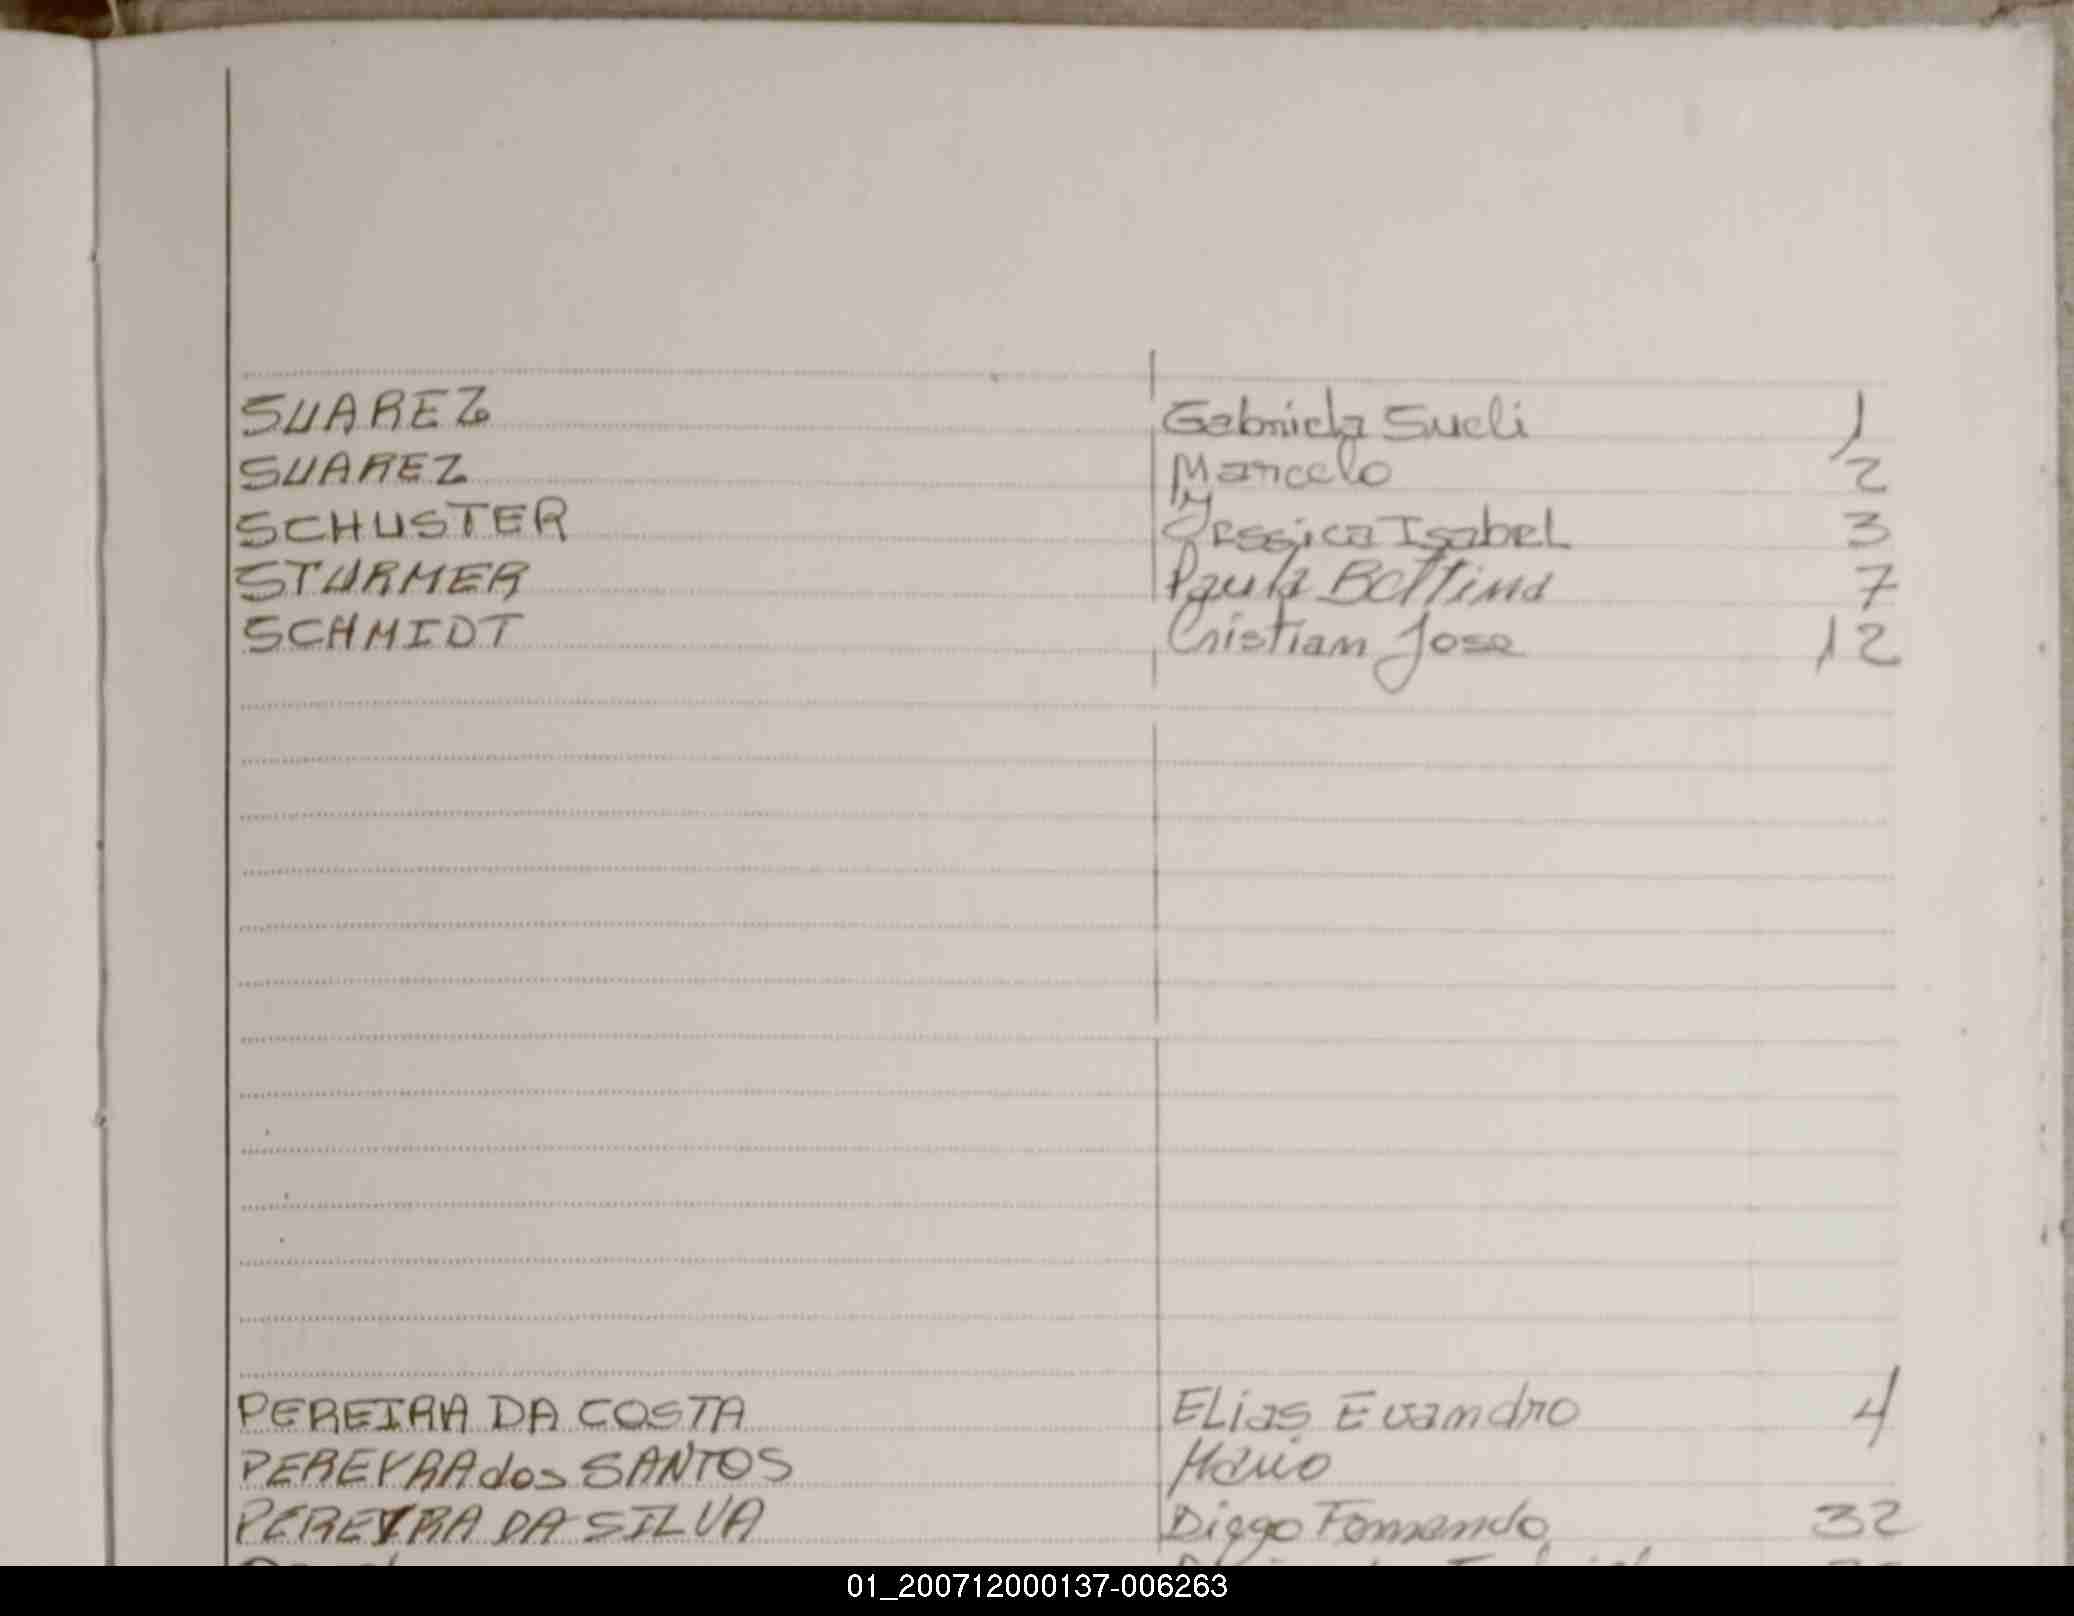 SUAREZ Gabriela Sueli 1
SUAREZ Marcelo 2
SCHUSTER Yessica Isabel 3
STURMER Paula Bettina 7
SCHMIDT Cristian Jose 12
PEREIRA DA COSTA ELias Evandro 4
PEREYRA dos SANTOS Mario
PEREYRA DA SILVA Diego Fernando 32
01_200712000137-006263